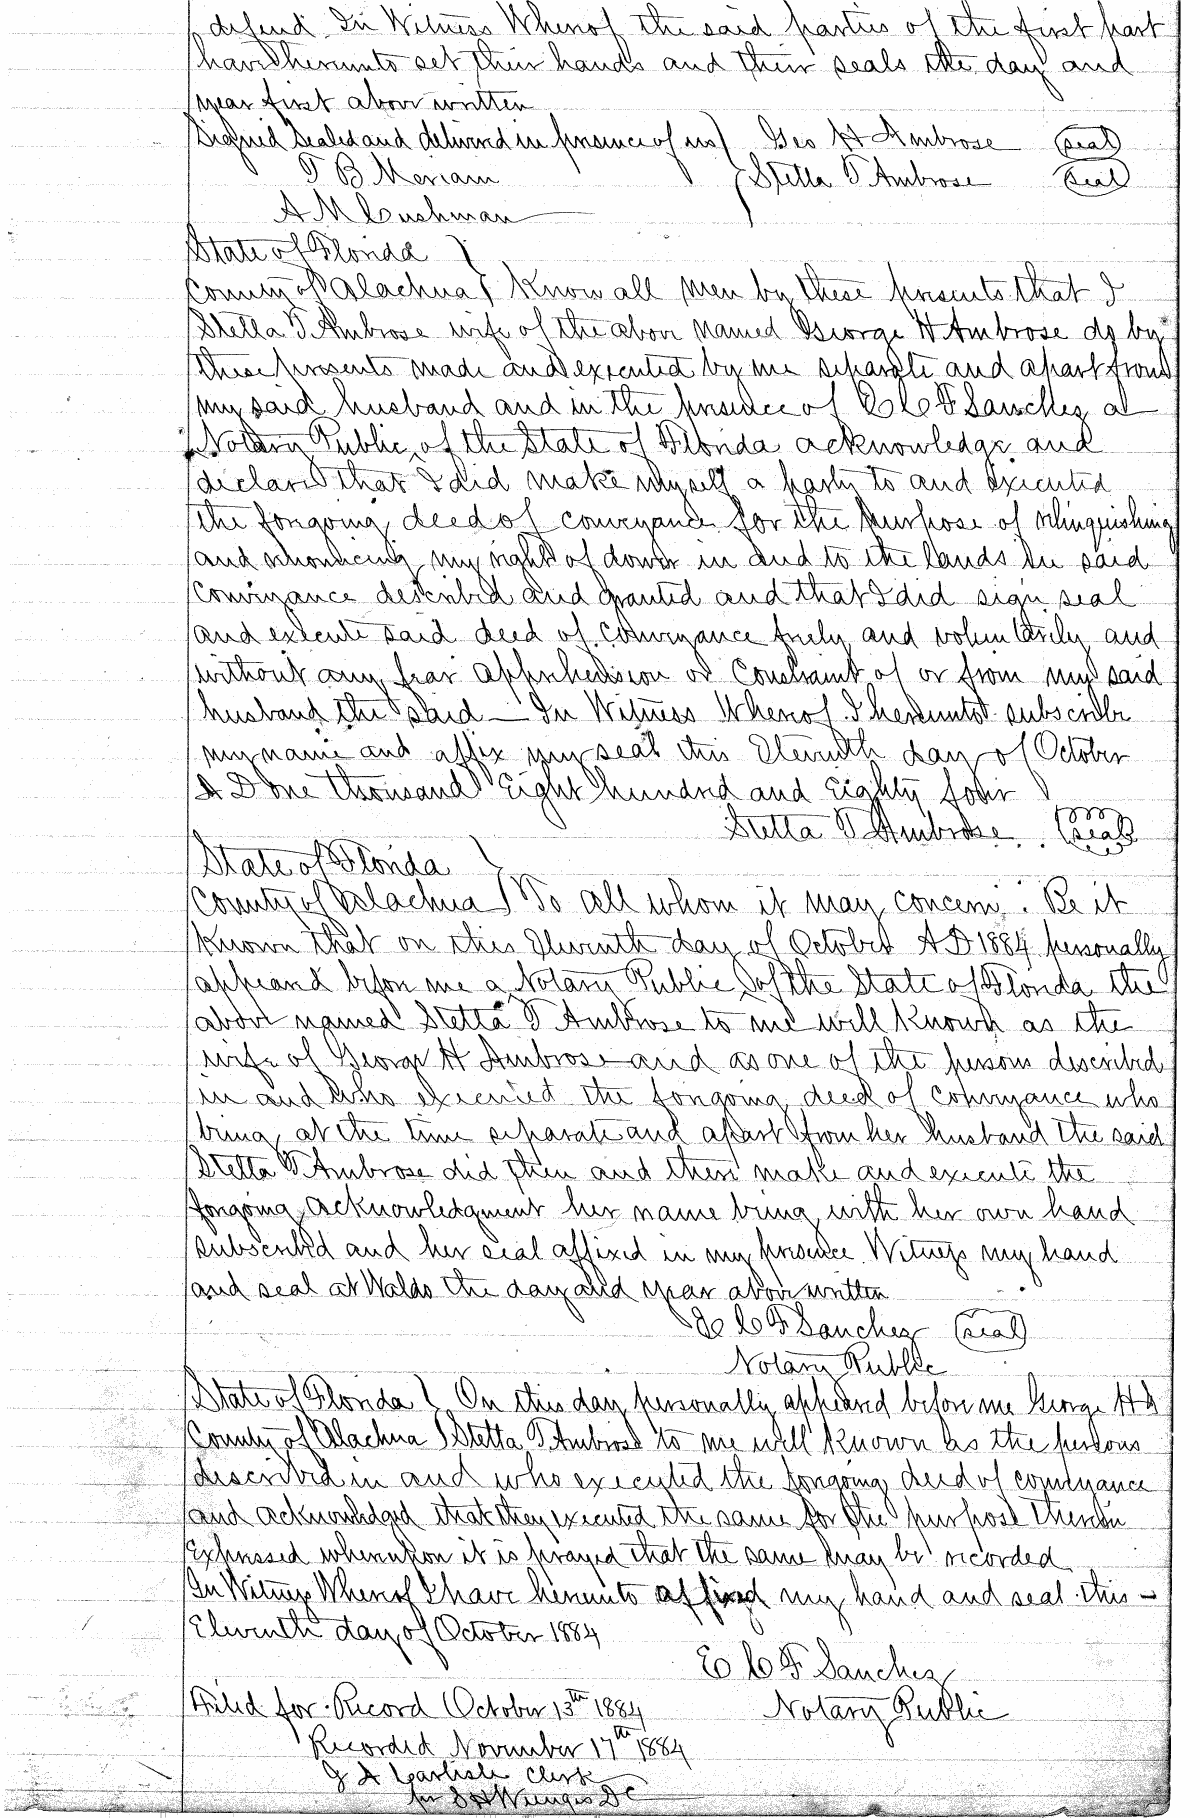 defend In Witness Whereof the said parties of the first part
have hereunto set their hands and their seals the day and
year first above written
Signed Sealed and delivered in presence of us) Geo H Ambrose (seal)
T B Meriam Stella T Ambrose (seal)
A M Cushman
State of Florida
County of Alachua } Know all men by these presents that I
Stella T Ambrose wife of the above named George H Ambrose do by
these presents made and executed by me separate and apart from
my said husband and in the presence of E C F Sanchez a
Notary Public of the State of Florida acknowledge and
declare that I did make myself a party to and executed
the foregoing deed of conveyance for the purpose of relinquishing
and renouncing my right of dower in and to the lands in said
Conveyance described and granted and that I did sign seal
and execute said deed of conveyance freely and voluntarily and
without any fear apprehension or constraint of or from my said
husband the said — In Witness Whereof I hereunto subscribe
my name and affix my seal this Eleventh day of October
A D One thousand Eight hundred and Eighty four
Stella T Ambrose (seal)
State of Florida
County of Alachua } To all whom it may concern : Be it
Known that on this Eleventh day of October A D 1884 personally
appeared before me a Notary Public of the State of Florida the
above named Stella T Ambrose to me well known as the
wife of George H Ambrose and as one of the persons described
in and who executed the foregoing deed of conveyance who
being at the time separate and apart from her husband the said
Stella T Ambrose did then and there make and execute the
foregoing acknowledgment her name being with her own hand
subscribed and her seal affixed in my presence Witness my hand
and seal at Waldo the day and year above written
E C F Sanchez (seal)
Notary Public
State of Florida } On this day personally appeared before me George H &
County of Alachua } Stella T Ambrose to me well known as the persons
described in and who executed the foregoing deed of conveyance
and acknowledged that they executed the same for the purpose therein
Expressed whereupon it is prayed that the same may be recorded
In Witness Whereof I have hereunto affixed my hand and seal this —
Eleventh day of October 1884
E C F Sanchez
Filed for Record October 13th 1884 Notary Public
Recorded November 17th 1884
J A Carlisle Clerk
per D C